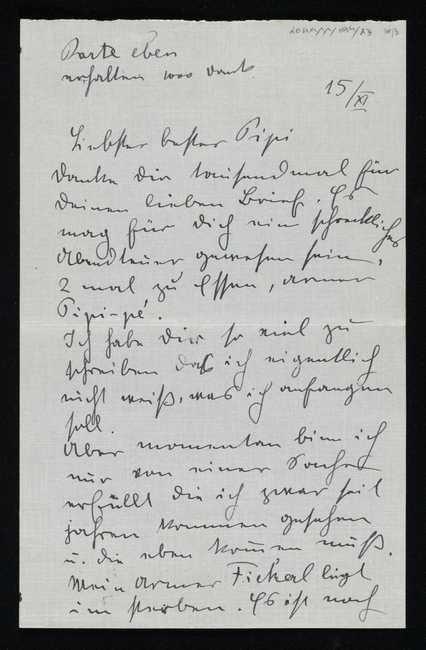 Karte eben
erhalten 1000 Dank
15/XI
Liebster bester Pipi
danke dir tausendmal für
deinen lieben Brief. Es
mag für dich ein schreckliches
Abendteuer gewesen sein,
2 mal zu Essen, armer
Pipi-pé.
Ich habe dir so viel zu
schreiben daß ich eigentlich
nicht weiß, was ich anfangen
soll.
Aber momentan binn ich
nur von einer Sache
erfüllt die ich zwar seit
jahren kommen gesehen
u. die eben kom̄en muß.
Mein armer Fickerl liegt
im sterben. Es ist noch